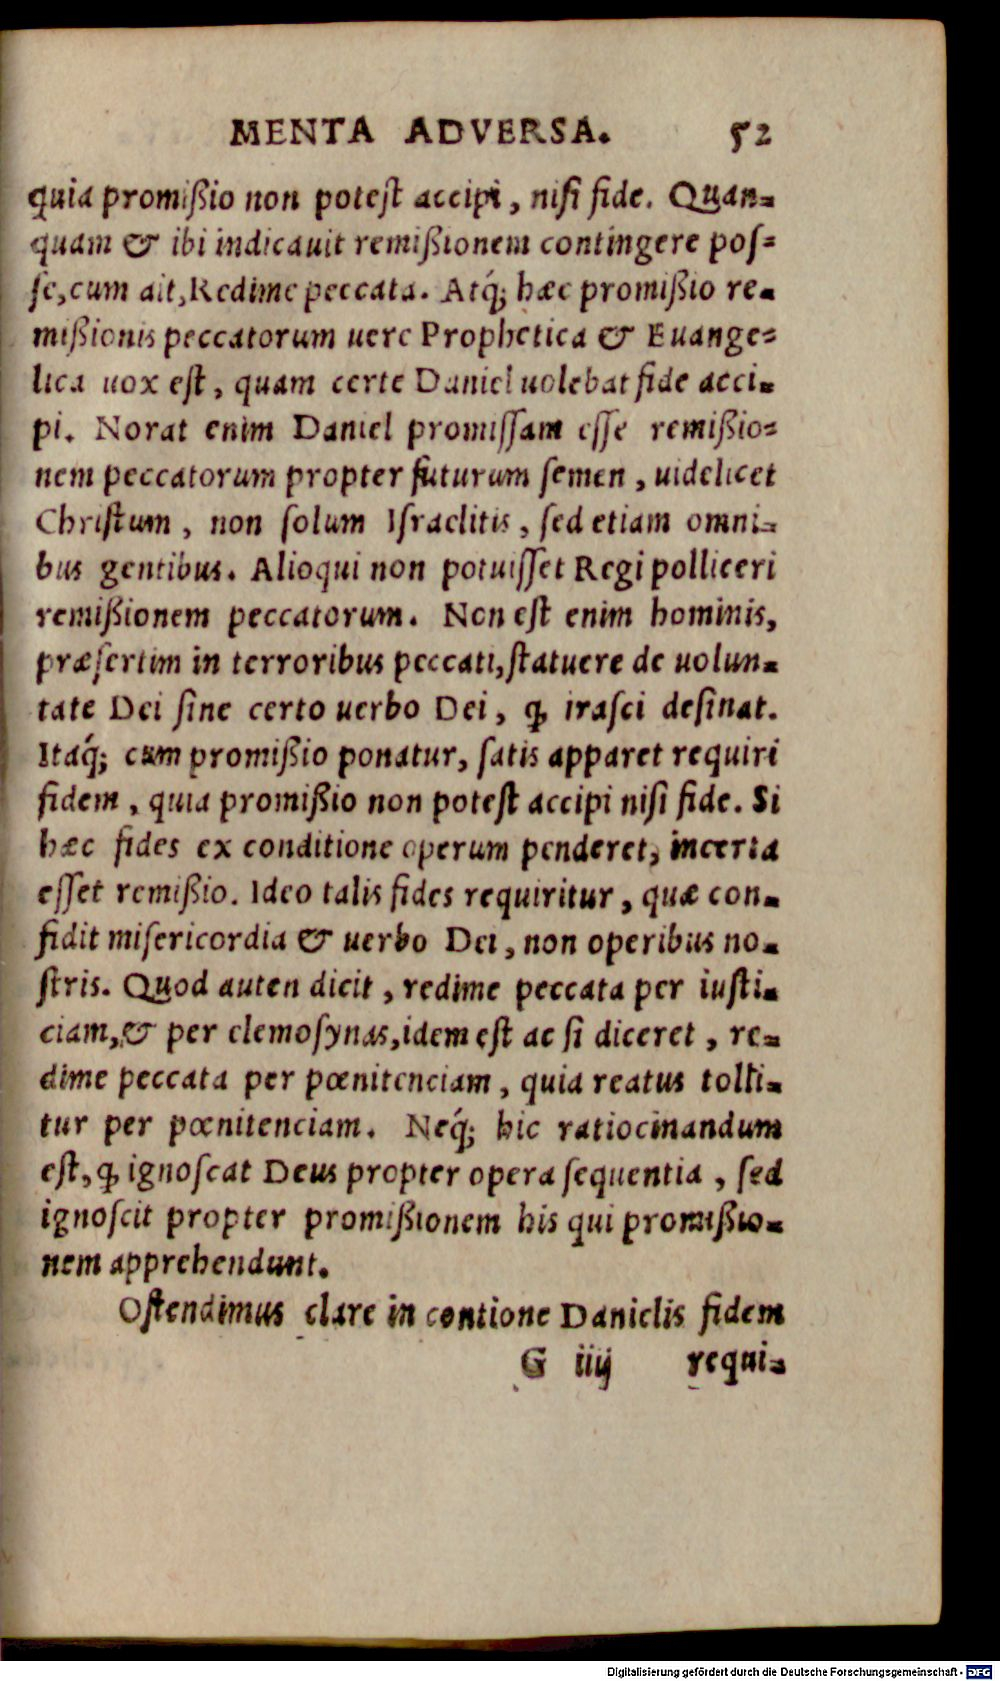 MENTA ADVERSA. 52
quia promißio non poteſt accipi, niſi fide. Quan-
quam & ibi indicauit remißionem contingere poſ-
ſe, cum ait, Redime peccata. Atq́; hæc promißio re-
mißionis peccatorum uere Prophetica & Euange-
lica uox eſt, quam certe Daniel uolebat fide acci-
pi. Norat enim Daniel promiſſam eſſe remißio-
nem peccatorum propter futurum ſemen, uidelicet
Chriſtum, non ſolum Iſraelitis, ſed etiam omni-
bus gentibus. Alioqui non potuiſſet Regi polliceri
remißionem peccatorum. Non eſt enim hominis,
præſertim in terroribus peccati, ſtatuere de uolun-
tate Dei ſine certo uerbo Dei, ꝙ iraſci deſinat.
Itaq́; cum promißio ponatur, ſatis apparet requiri
fidem, quia promißio non poteſt accipi niſi fide. Si
hæc fides ex conditione operum penderet, incerta
eſſet remißio. Ideo talis fides requiritur, quæ con-
fidit miſericordia & uerbo Dei, non operibus no-
ſtris. Quod auten dicit, redime peccata per iuſti-
ciam, & per elemoſynas, idem eſt ac ſi diceret, re-
dime peccata per pœnitenciam, quia reatus tolli-
tur per pœnitenciam. Neq́; hic ratiocinandum
eſt, ꝙ ignoſcat Deus propter opera ſequentia, ſed
ignoſcit propter promißionem his qui promißio-
nem apprehendunt.
Oſtendimus clare in contione Danielis fidem
G iiij requi-
Digitalisierung gefördert durch die Deutsche Forschungsgemeinschaft - DFG